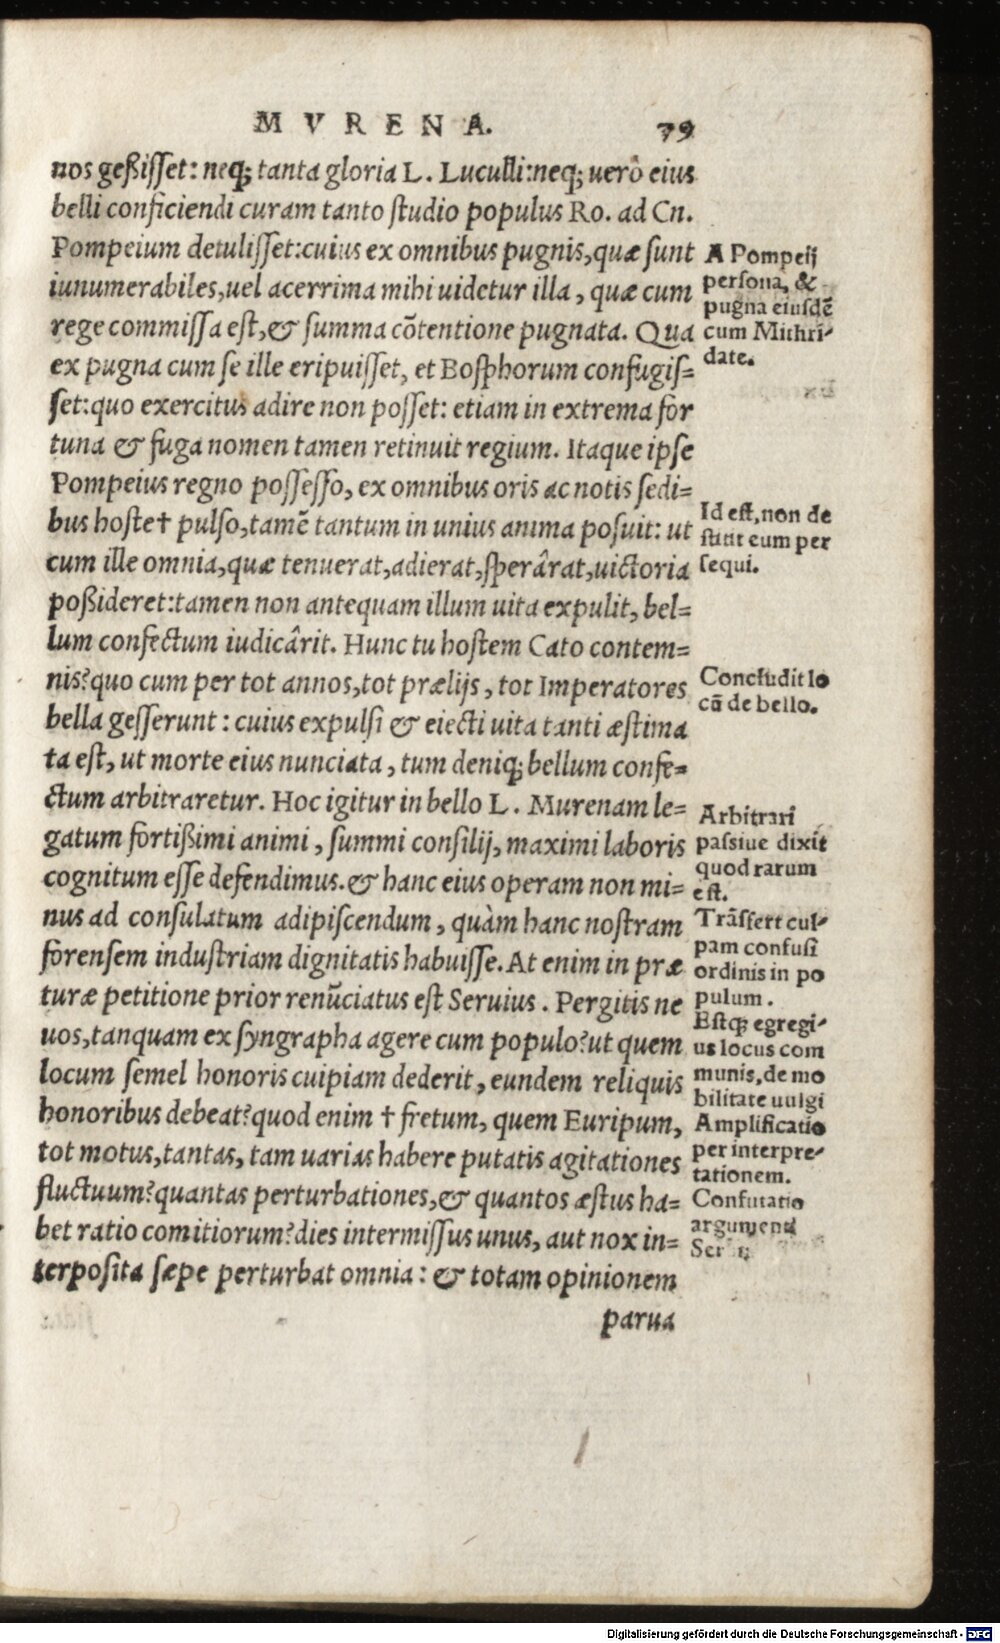 MVRENA. 79
nos geßisset: neq; tanta gloria L. Luculli: neq; uerò eius
belli conficiendi curam tanto studio populus Ro. ad Cn.
Pompeium detulisset: cuius ex omnibus pugnis, quæ sunt
iunumerabiles, uel acerrima mihi uidetur illa, quæ cum
rege commissa est, & summa cōtentione pugnata. Qua
ex pugna cum se ille eripuisset, et Bosphorum confugis=
set: quo exercitus adire non posset: etiam in extrema for
tuna & fuga nomen tamen retinuit regium. Itaque ipse
Pompeius regno possesso, ex omnibus oris ac notis sedi=
bus hoste† pulso, tamē tantum in unius anima posuit: ut
cum ille omnia, quæ tenuerat, adierat, sperârat, uictoria
poßideret: tamen non antequam illum uita expulit, bel=
lum confectum iudicârit. Hunc tu hostem Cato contem=
nis? quo cum per tot annos, tot prælijs, tot Imperatores
bella gesserunt: cuius expulsi & eiecti uita tanti æstima
ta est, ut morte eius nunciata, tum deniq; bellum confe=
ctum arbitraretur. Hoc igitur in bello L. Murenam le=
gatum fortißimi animi, summi consilij, maximi laboris
cognitum esse defendimus. & hanc eius operam non mi=
nus ad consulatum adipiscendum, quàm hanc nostram
forensem industriam dignitatis habuisse. At enim in præ
turæ petitione prior renūciatus est Seruius. Pergitis ne
uos, tanquam ex syngrapha agere cum populo? ut quem
locum semel honoris cuipiam dederit, eundem reliquis
honoribus debeat? quod enim † fretum, quem Euripum,
tot motus, tantas, tam uarias habere putatis agitationes
fluctuum? quantas perturbationes, & quantos æstus ha=
bet ratio comitiorum? dies intermissus unus, aut nox in=
terposita sæpe perturbat omnia: & totam opinionem
parua
A Pompeij
persona, &
pugna eiusdē
cum Mithri-
date.
Id est, non de
stitit eum per
sequi.
Concludit lo
cū de bello.
Arbitrari
passiue dixit
quod rarum
est.
Trāsfert cul-
pam confusi
ordinis in po
pulum.
Estq; egregi-
us locus com
munis, de mo
bilitate uulgi
Amplificatio
per interpre-
tationem.
Confutatio
argumenti
Digitalisierung gefördert durch die Deutsche Forschungsgemeinschaft - DFG